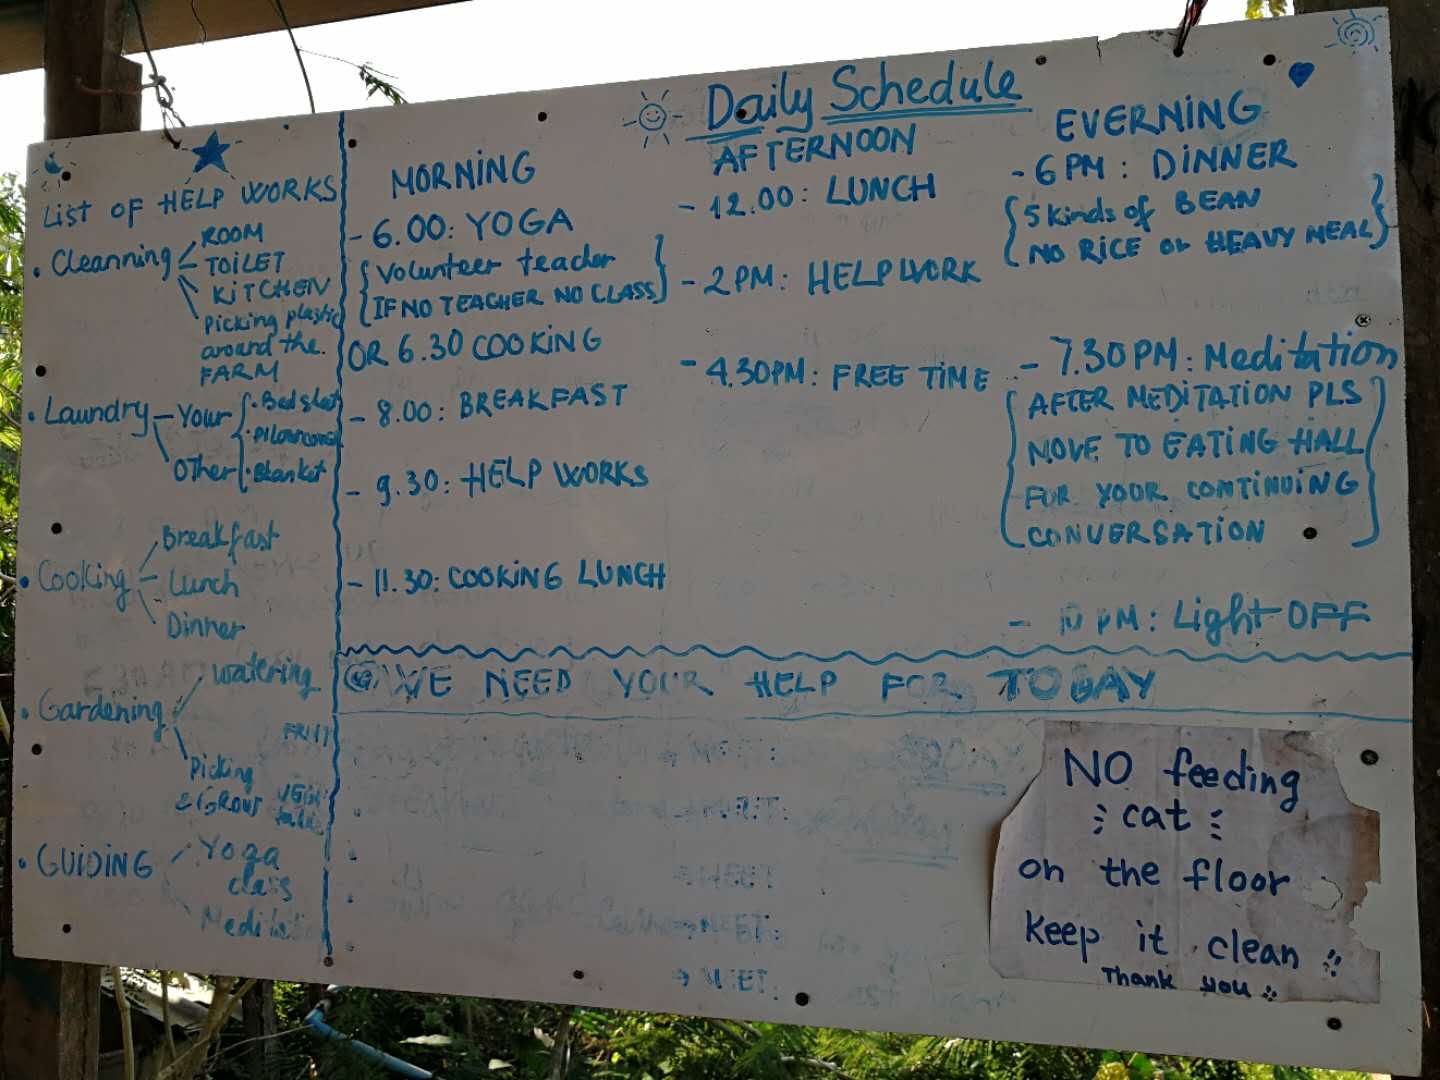 LIST OF HELP WORKS
• Cleanning
ROOM
TOILET
KITCHEN
Picking plastic
around the.
FARM
• Laundry – Your
Other
• Blanket
• Cooking
Breakfast
Lunch
Dinner
• Gardening
Watering
Picking
• GUIDING
Yoga
class
Daily Schedule
MORNING
- 6.00: YOGA
{Volunteer teacher
IF NO TEACHER NO CLASS}
OR 6.30 COOKING
- 8.00: BREAKFAST
- 9.30: HELP WORKS
- 11.30: COOKING LUNCH
AFTERNOON
- 12.00: LUNCH
- 2 PM: HELP WORK
- 4.30PM: FREE TIME
EVERNING
- 6 PM: DINNER
{5 kinds of BEAN
NO RICE or HEAVY MEAL}
- 7.30PM: Meditation
{AFTER MEDITATION PLS
MOVE TO EATING HALL
FOR YOUR CONTINUING
CONVERSATION}
- 10 PM: Light OFF
WE NEED YOUR HELP FOR TODAY
MEET:
MEET:
MEET
MEET:
NO feeding
cat
on the floor
Keep it clean !!
Thank you